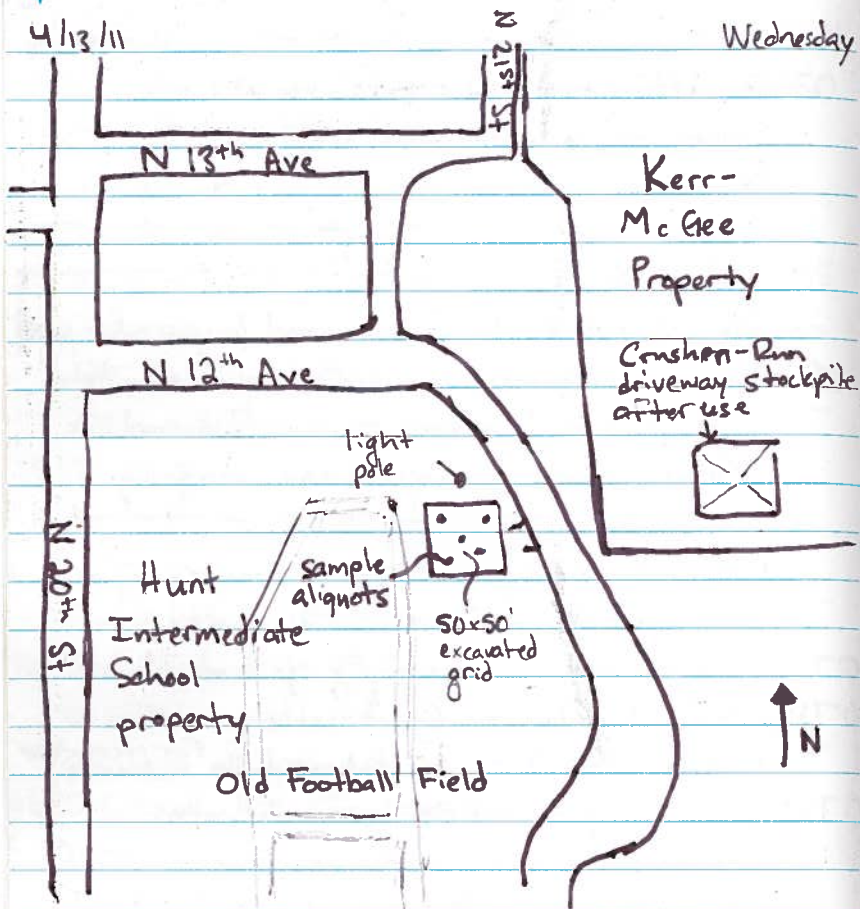 4/13/11
Wednesday
N 21st St
N 13th Ave
Kerr-
McGee
Property
N 12th Ave
Crusher-Run
driveway stockpile
after use
light
pole
N 20th St
Hunt
Intermediate
School
property
sample
aliquots
50x50'
excavated
grid
N
Old Football Field